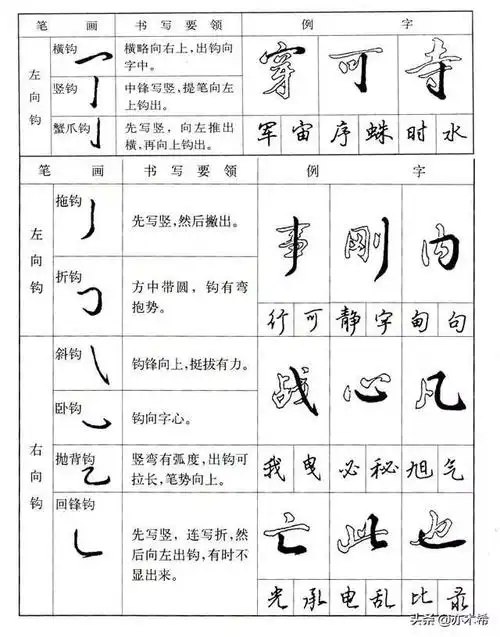 笔 画 书写要领 例 字
左向钩
横钩 横略向右上,出钩向字中。
竖钩 中锋写竖,提笔向左上钩出。
蟹爪钩 先写竖,向左推出横,再向上钩出。
穿 可 寺
军 宙 序 蛛 时 水
笔 画 书写要领 例 字
左向钩
拖钩 先写竖,然后撇出。
折钩 方中带圆,钩有弯抱势。
事 刚 内
行 可 静 字 甸 句
右向钩
斜钩 钩锋向上,挺拔有力。
卧钩 钩向字心。
抛背钩 竖弯有弧度,出钩可拉长,笔势向上。
回锋钩 先写竖,连写折,然后向左出钩,有时不显出来。
战 心 凡
我 曳 必 秘 旭 气
亡 此 也
光 承 电 乱 比 录
头条@亦木希